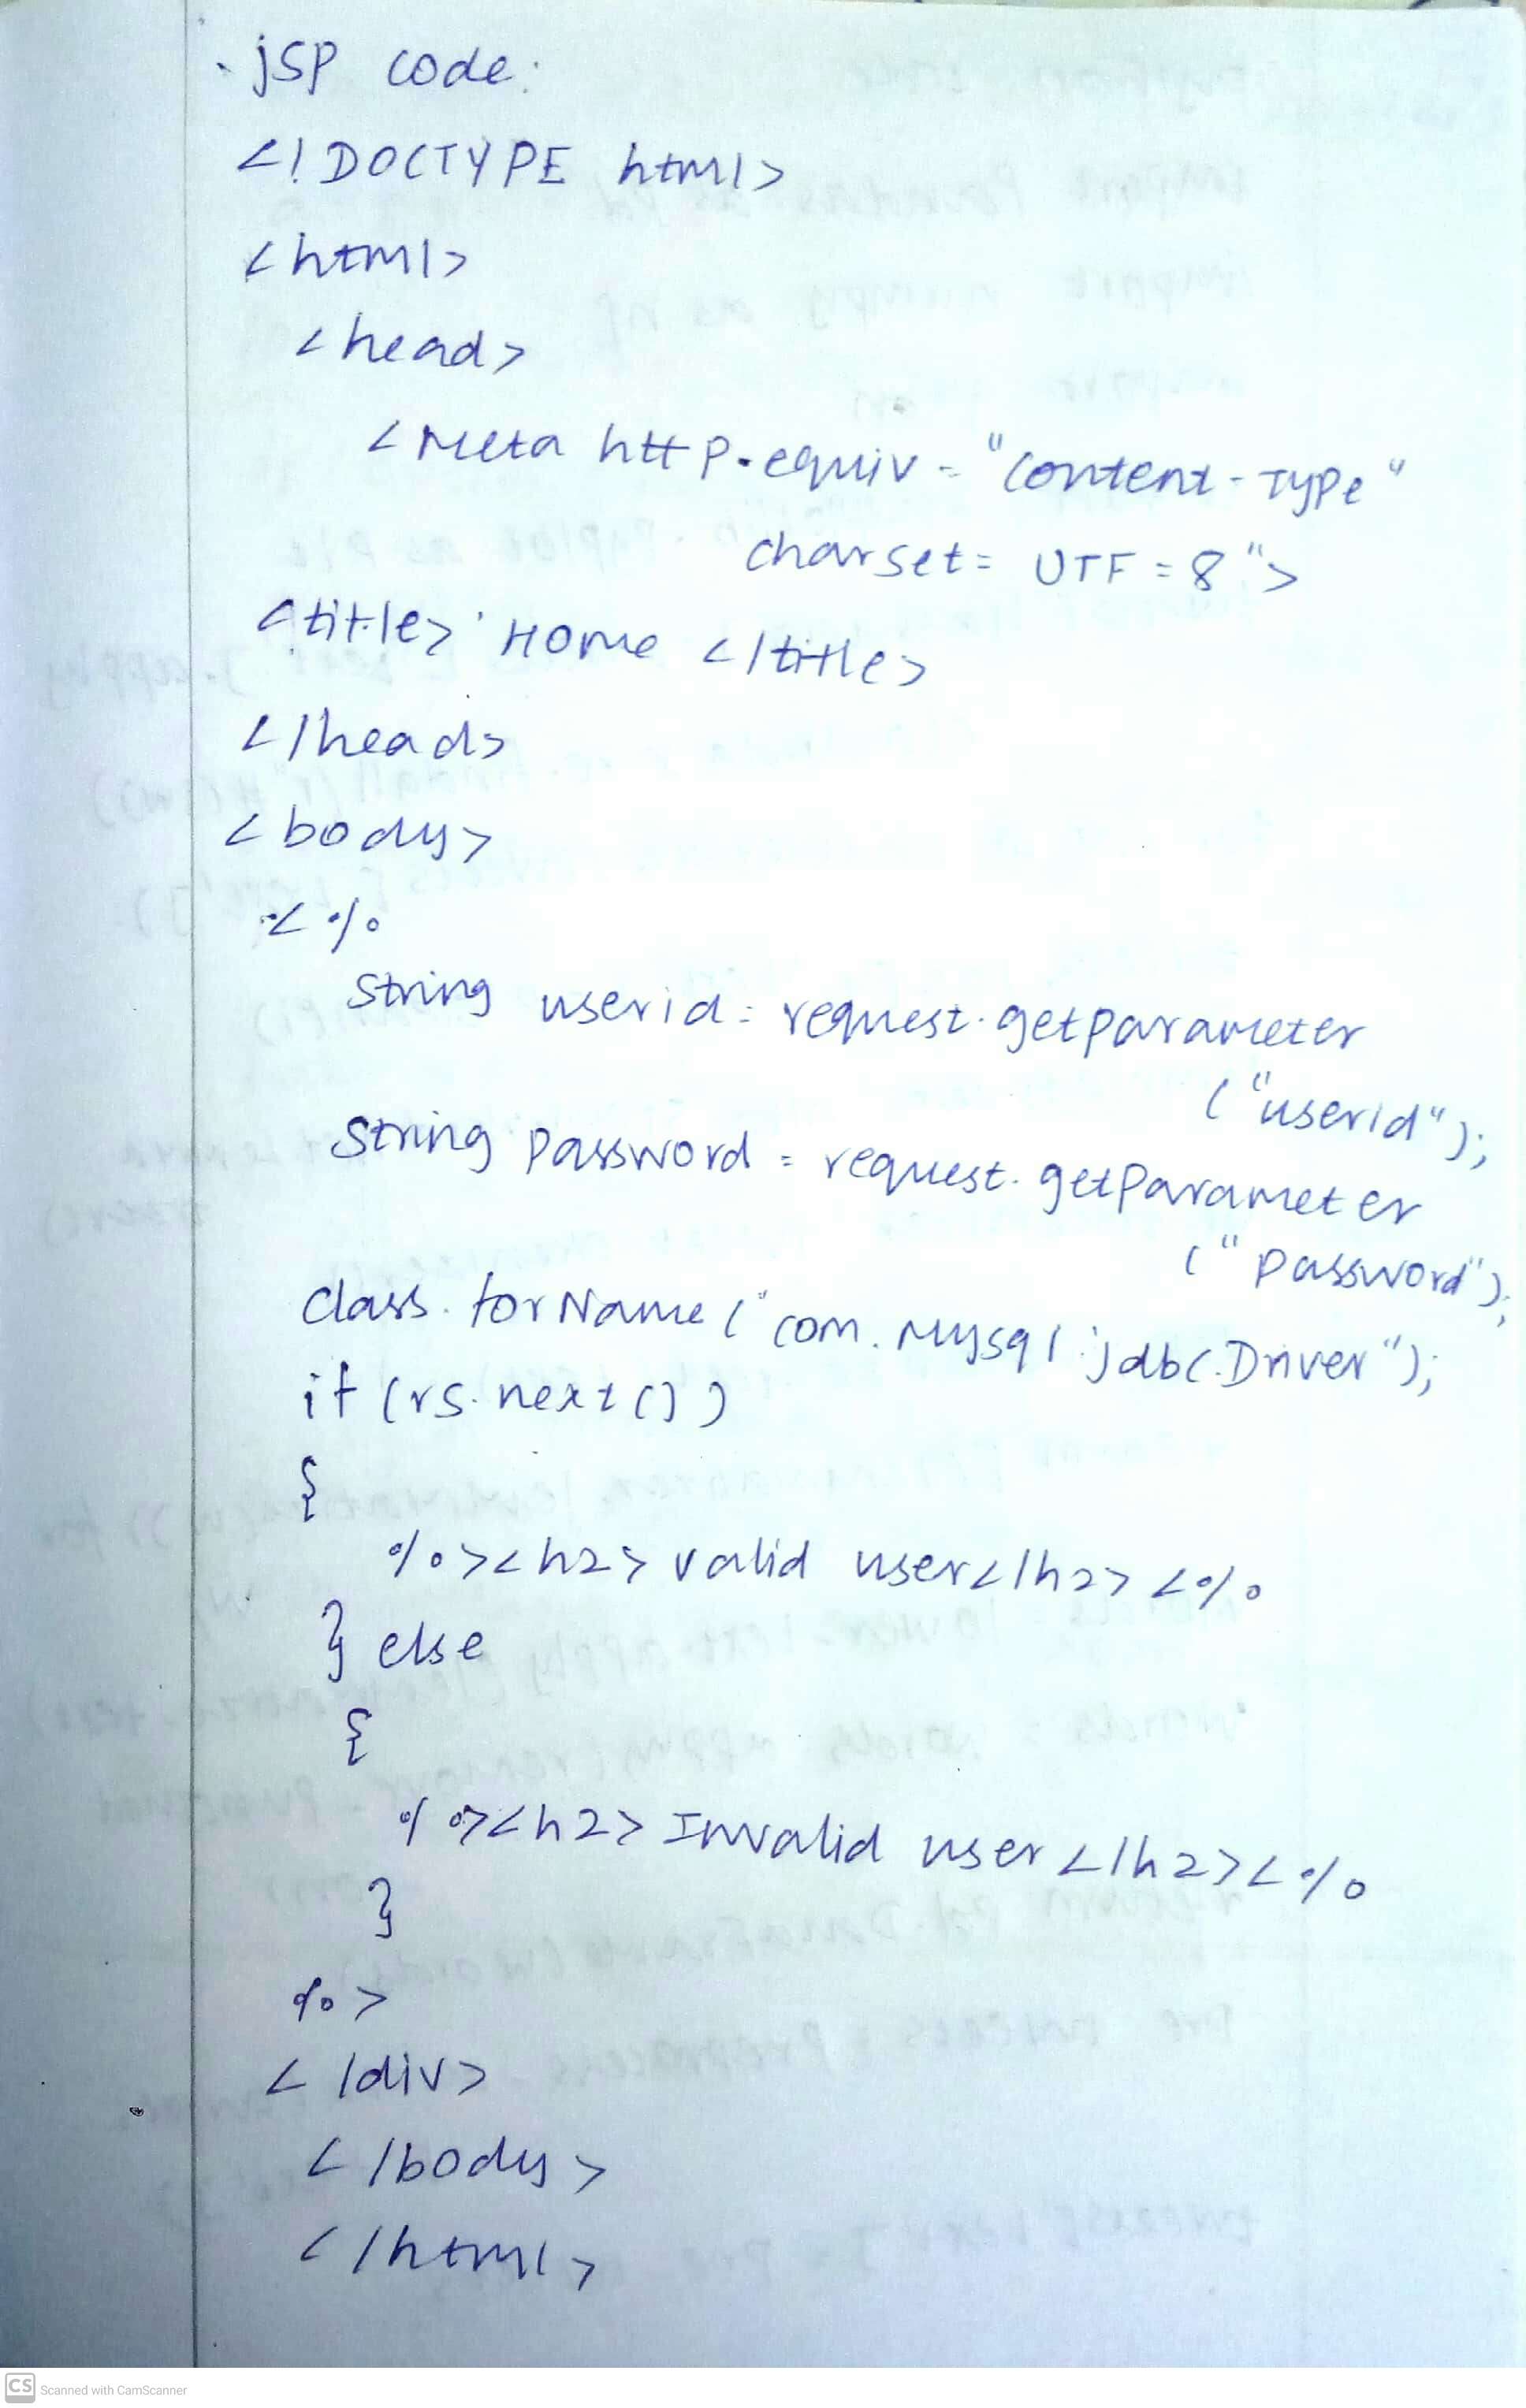 jsp code:
<!DOCTYPE html>
<html>
<head>
<Meta http-equiv = "Content-Type"
charset= UTF=8">
<title> Home </title>
</head>
<body>
<%
String userid = request.getparameter
("userid");
String password = request.getParameter
("password");
class.forName("com.Mysql.jdbc.Driver");
if (rs.next())
{
%><h2> valid user</h2> <%
} else
{
%><h2> Invalid user </h2><%
}
%>
</div>
</body>
</html>
CS Scanned with CamScanner